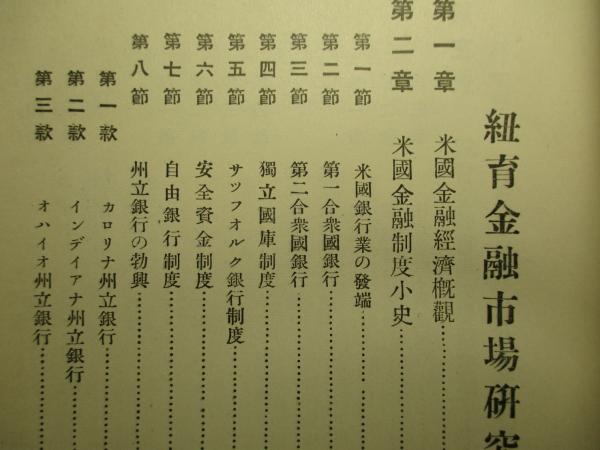 紐育金融市場研究
第一章 米國金融經濟槪觀
第二章 米國金融制度小史
第一節 米國銀行業の發端
第二節 第一合衆國銀行
第三節 第二合衆國銀行
第四節 獨立國庫制度
第五節 サツフオルク銀行制度
第六節 安全資金制度
第七節 自由銀行制度
第八節 州立銀行の勃興
第一款 カロリナ州立銀行
第二款 インデイアナ州立銀行
第三款 オハイオ州立銀行